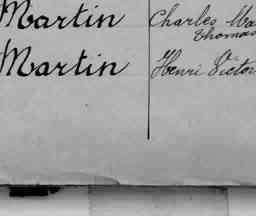 Martin Charles Ma
Thomas
Martin Henri Victor